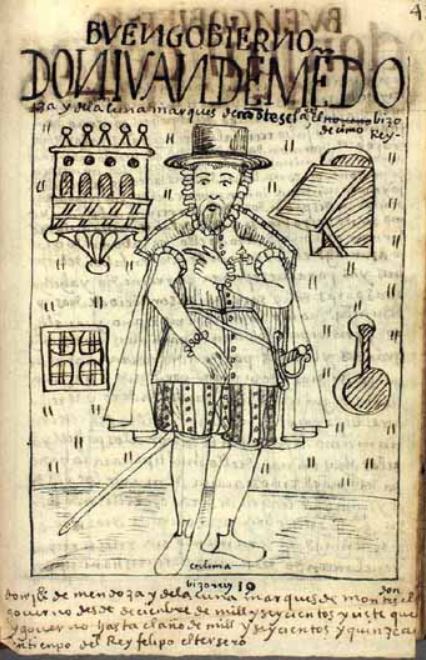 4
BVĒNGOBIERNO
DON IVAN DE MĒDO
za y dela luna marques de mōtescl̄aros
bizo
decimo Rey-
en lima
bizorrey 10
don juº de mendoza y dela luna marques de montescl
don
gouerno desde deciembre de mill y seycientos y siete que
y gouerno hasta el año de mill y seycientos y quinze
en tienpo del Rey felipo el tersero